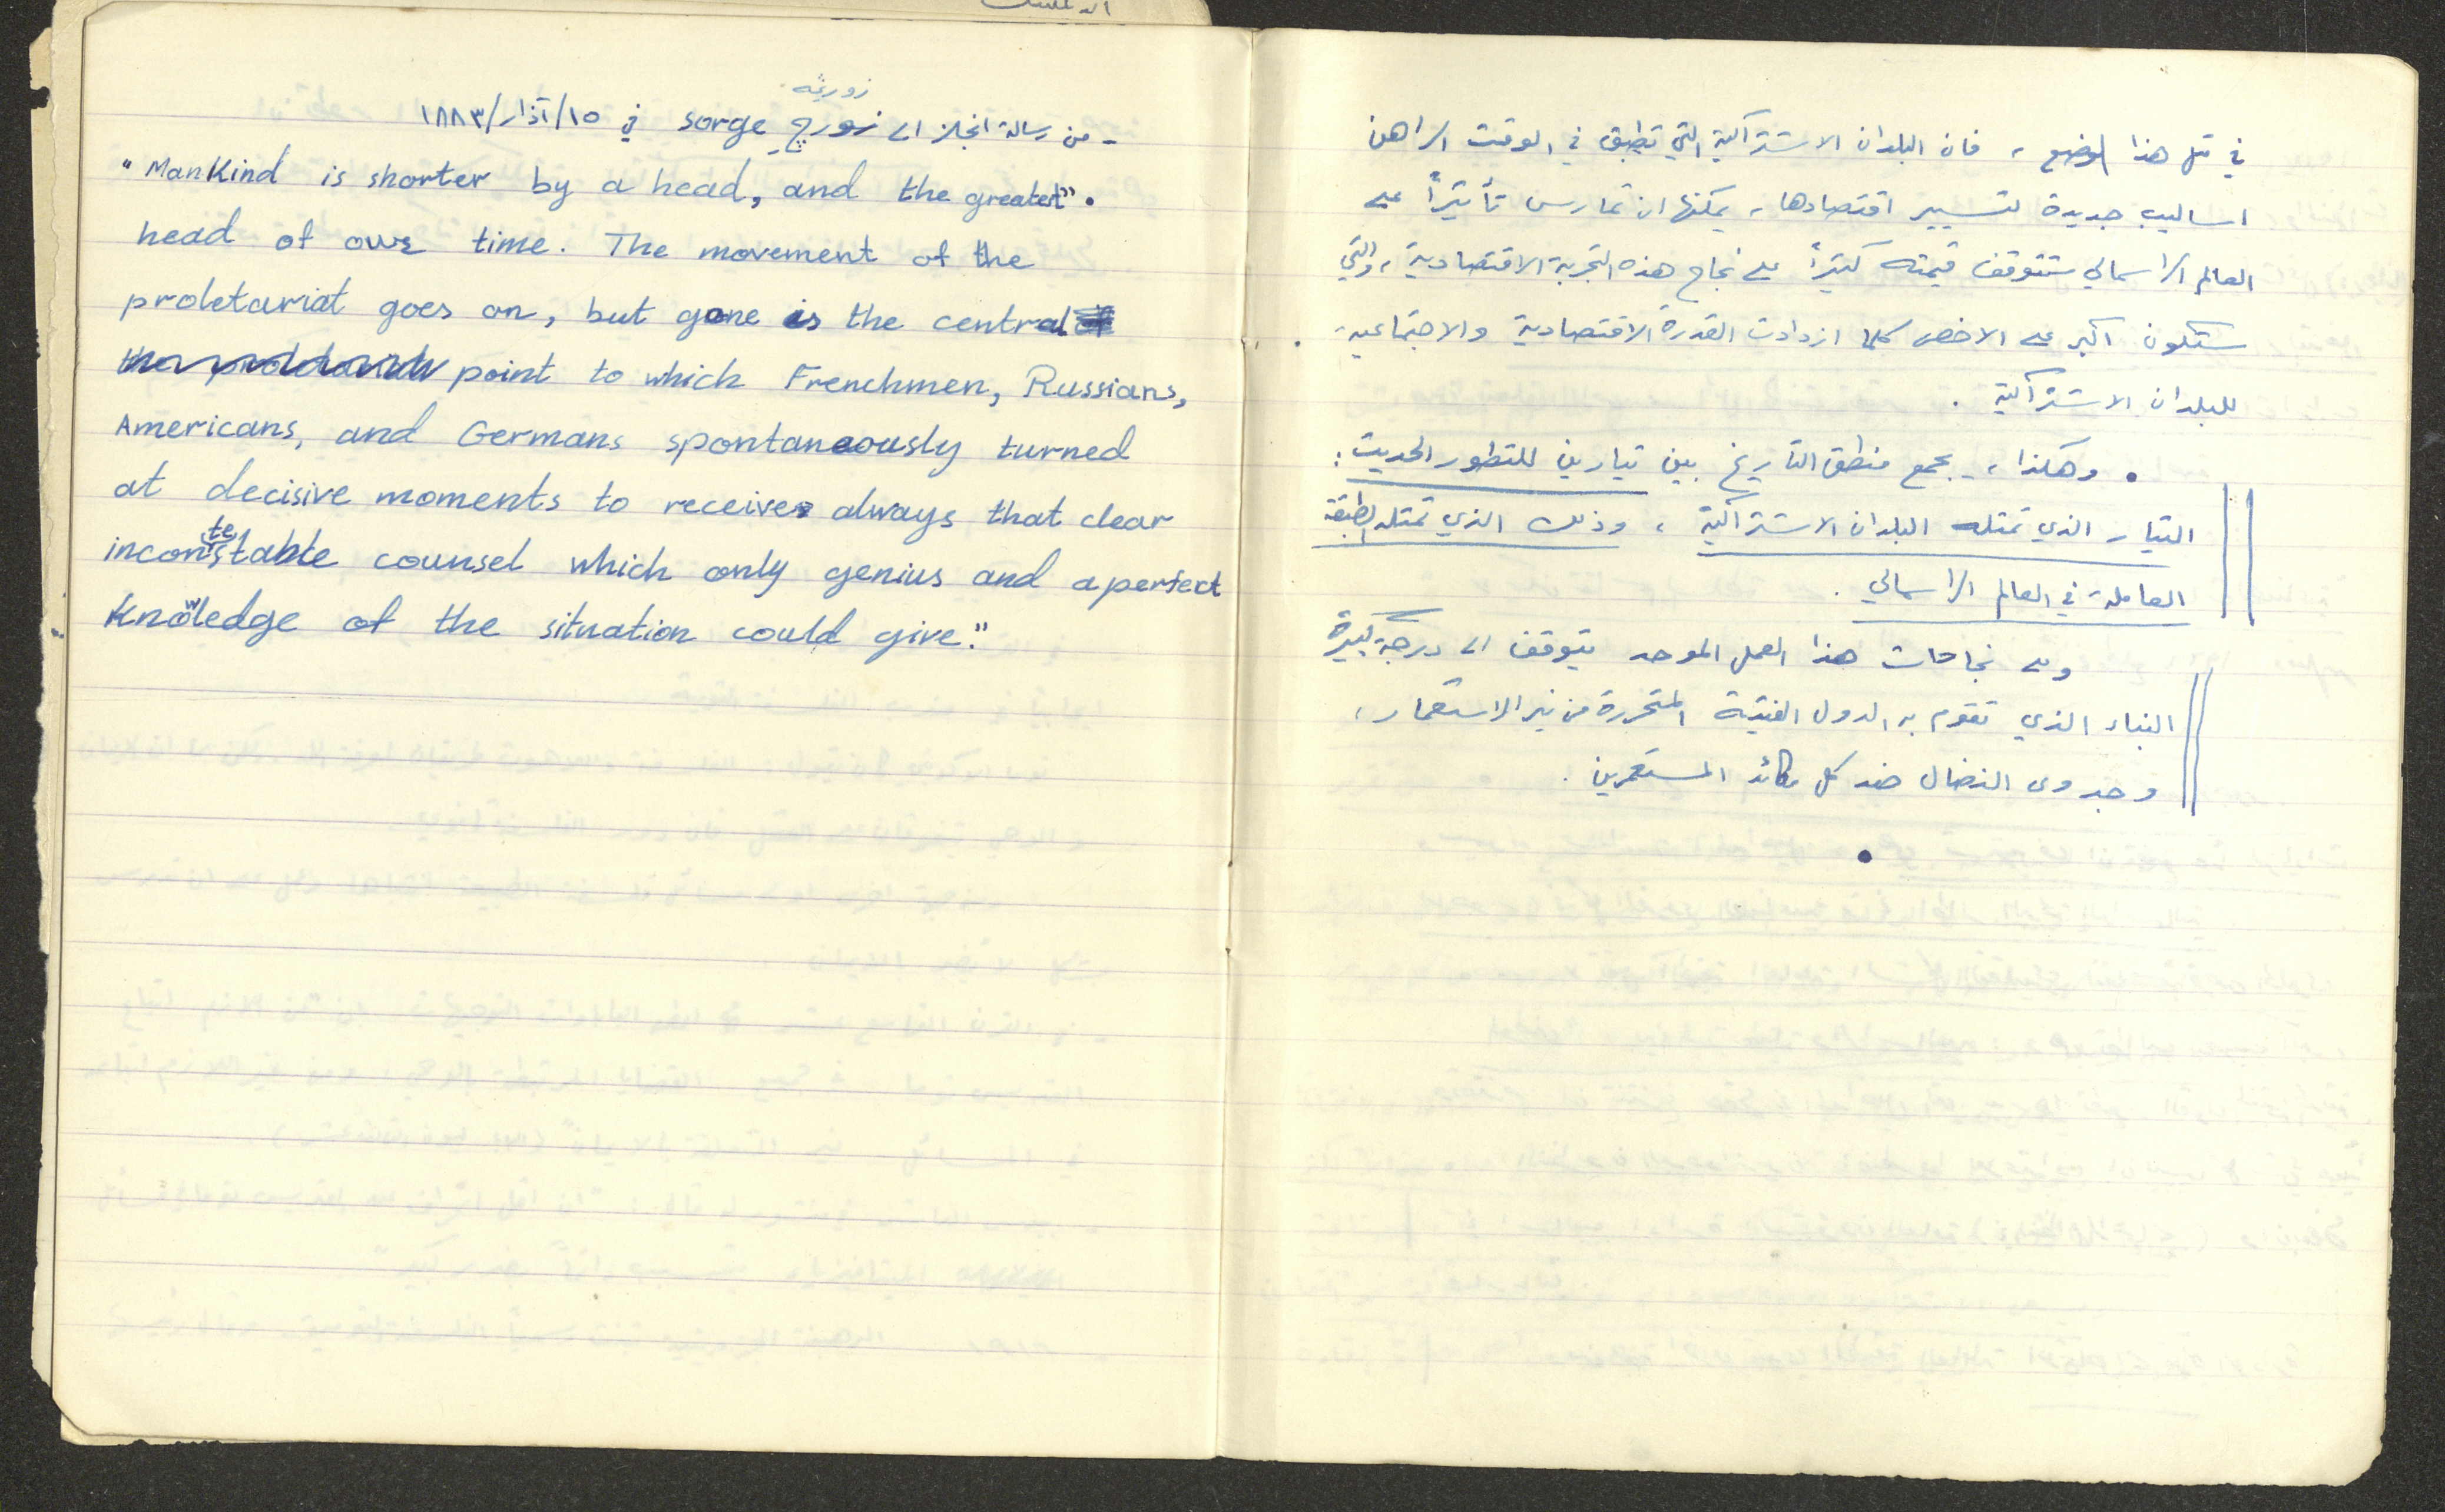 في مثل هذا الوضع ، فان البلدان الاشتراكية التي تطبق في الوقت الراهن
اساليب جديدة لتسيير اقتصادها ، يمكنها ان تمارس تأثيراً على
العالم الرأسمالي ستتوقف قيمته كثيراً على نجاح هذه التجربة الاقتصادية ، والتي
ستكون اكبر على الاخص كلما ازدادت القدرة الاقتصادية والاجتماعية
للبلدان الاشتراكية .
• وهكذا ، يجمع منطق التأريخ بين تيارين للتطور الحديث :
التيار الذي تمثله البلدان الاشتراكية ، وذلك الذي تمثله الطبقة
العاملة في العالم الرأسمالي .
وعلى نجاحات هذا العمل الموحد يتوقف الى درجة كبيرة
البناء الذي تقوم به الدول الفتية المتحررة من نير الاستعمار ،
وجدوى النضال ضد كل مكائد المستعمرين .
•
زورغه
- من رسالة انجلز الى زورج sorge في ١٥/آذار/١٨٨٣
"Mankind is shorter by a head, and the greatest".
head of our time. The movement of the
proletariat goes on, but gone is the central
point to which Frenchmen, Russians,
Americans, and Germans spontaneously turned
at decisive moments to receive always that clear
incontestable counsel which only genius and a perfect
Knowledge of the situation could give."